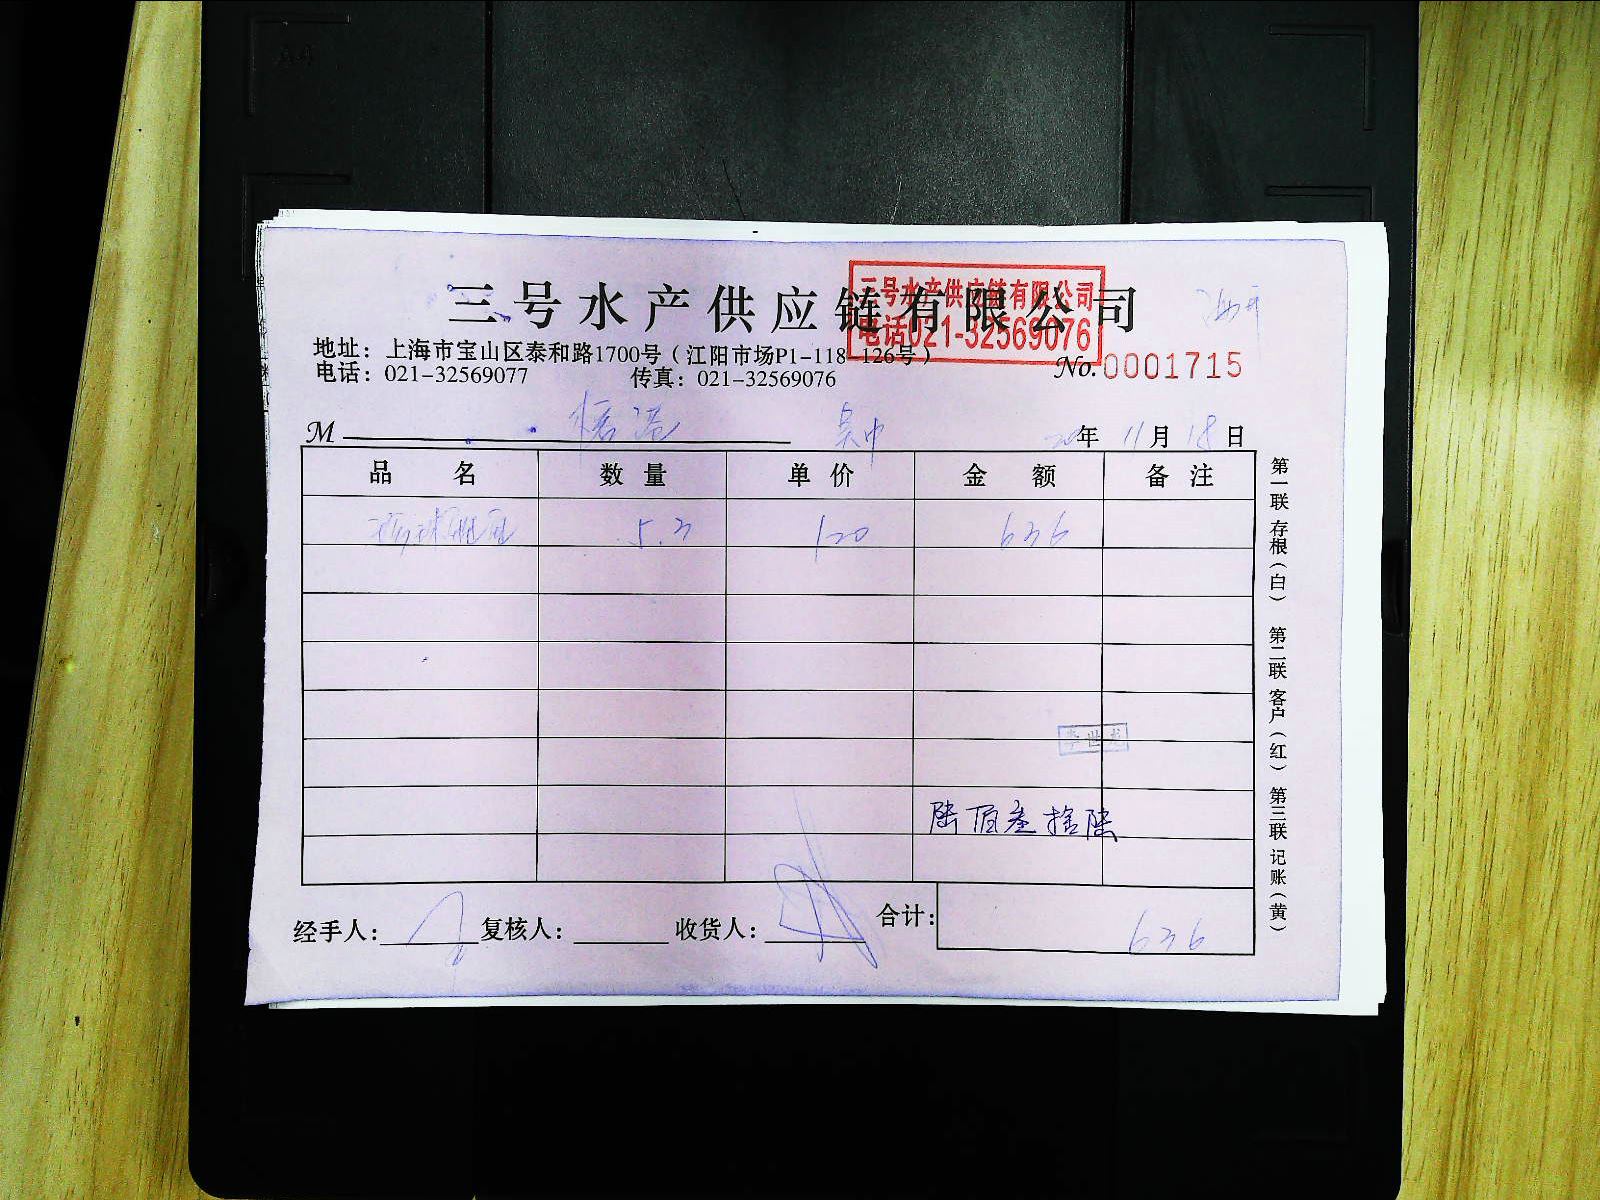 三号水产供应链有限公司
三号水产供应链有限公司
电话021-32569076
地址：上海市宝山区泰和路1700号（江阳市场P1-118-126号）
电话：021-32569077 传真：021-32569076
No.0001715
M 吴中 20年 11月 18日
品名 数量 单价 金额 备注
5.3 120 636
李世龙
陆佰叁拾陆
经手人： 复核人： 收货人： 合计： 636
第一联 存根（白） 第二联 客户（红） 第三联 记账（黄）